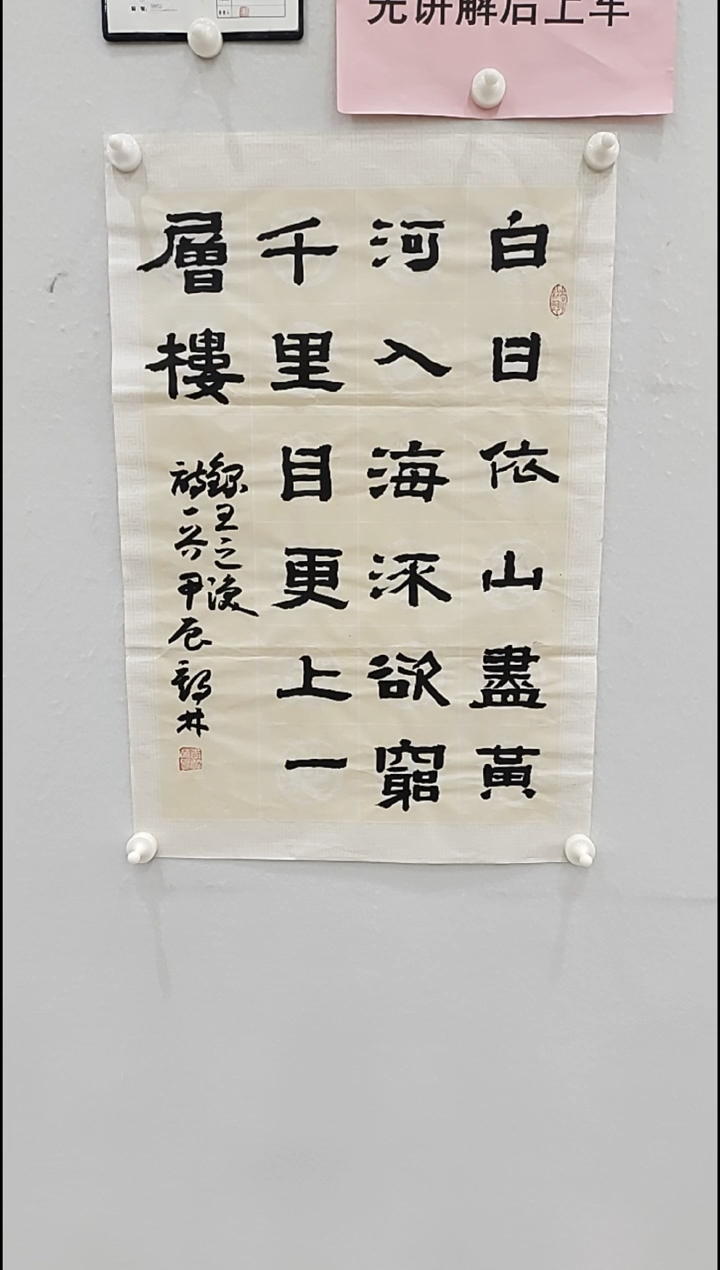 先讲解后上车
白日依山盡黃
河入海流欲窮
千里目更上一
層樓
錄王之渙
詩一首甲辰